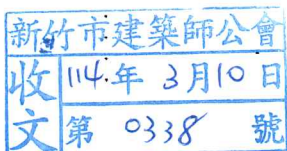 新竹市建築師公會
收文
114年3月10日
第0338號